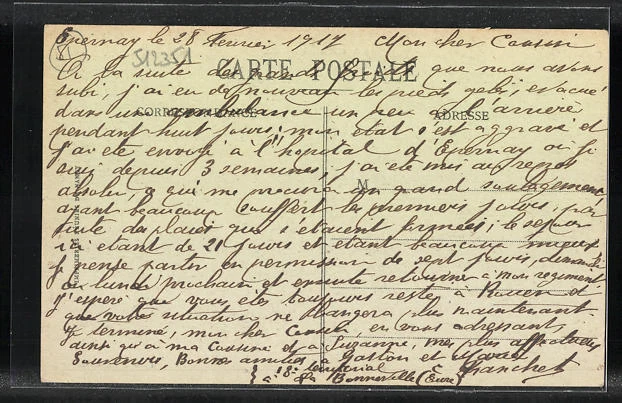 Epernay le 28 Fevrier 1917 Mon cher Cousin
512351
CARTE POSTALE
A la suite des grands froids que nous avons
subi, j'ai eu de nouveau les pieds gelés, evacué
dans une ambulance un peu à l'arrière
CORRESPONDANCE ADRESSE
pendant huit jours, mon état s'est aggravé et
j'ai été envoyé à l'hopital d'Epernay où je
suis depuis 3 semaines, j'ai été mis au repos
absolu, ce qui me procura un grand soulagement
M
ayant beaucoup souffert les premiers jours, par
suite des plaies qui s'étaient formées; le sejour
ici etant de 21 jours et étant beaucoup mieux
je pense partir en permission de sept jours,
ou lundi prochain et ensuite retourner à mon regiment
J'espère que vous etes toujours resté à Rouen et
que votre situation ne changera plus maintenant.
Je termine, mon cher Cousin, en vous adressant,
ainsi qu'à ma Cousine et à Suzanne, mes plus affectueux
Souvenirs, Bonnes amitiés à Gaston et
18e territorial
à la Bonneville (Eure)